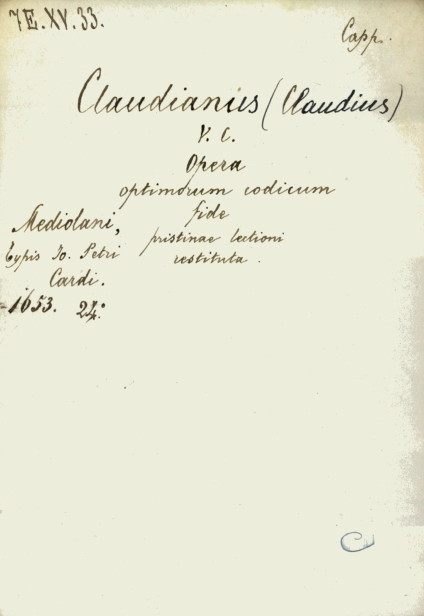 7E.XV.33.
Capp.
Claudianus (Claudius)
V. C.
Opera
optimorum codicum
fide
pristinae lectioni
restituta.
Mediolani,
typis Io. Petri
Cardi.
1653. 24.°
C